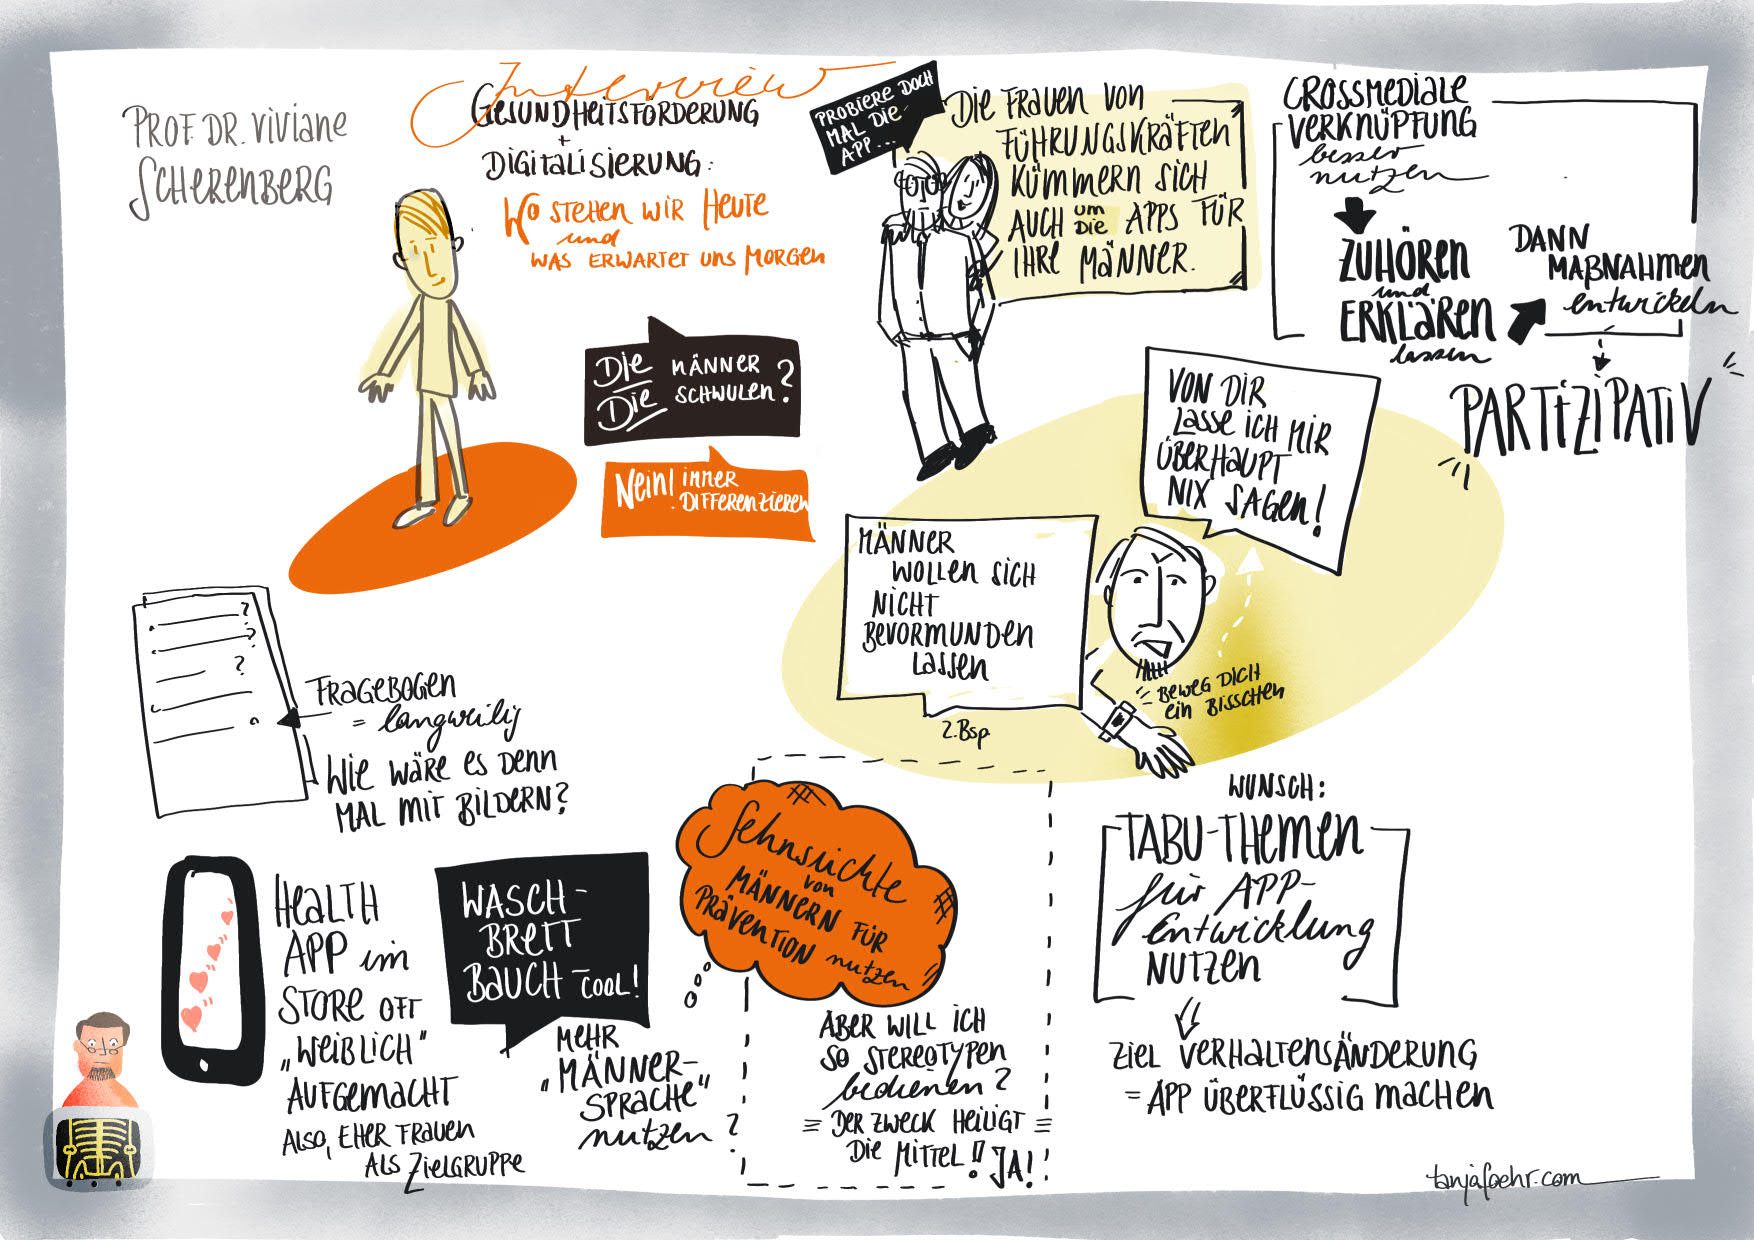 Interview
PROF. DR. VIVIANE
SCHERENBERG
GESUNDHEITSFÖRDERUNG
+
DIGITALISIERUNG:
WO STEHEN WIR HEUTE
und
WAS ERWARTET UNS MORGEN
DIE MÄNNER
DIE SCHWULEN?
NEIN! IMMER
DIFFERENZIEREN
PROBIERE DOCH
MAL DIE
APP...
DIE FRAUEN VON
FÜHRUNGSKRÄFTEN
KÜMMERN SICH
AUCH UM DIE APPS FÜR
IHRE MÄNNER.
CROSSMEDIALE
VERKNÜPFUNG
besser
nutzen
ZUHÖREN
und
ERKLÄREN
lassen
DANN
MAßNAHMEN
entwickeln
PARTIZIPATIV
VON DIR
LASSE ICH MIR
ÜBERHAUPT
NIX SAGEN!
MÄNNER
WOLLEN SICH
NICHT
BEVORMUNDEN
LASSEN
Z.Bsp.
BEWEG DICH
EIN BISSCHEN
? ? ?
FRAGEBOGEN
= langweilig
WIE WÄRE ES DENN
MAL MIT BILDERN?
HEALTH
APP im
STORE OFT
„WEIBLICH"
AUFGEMACHT
ALSO, EHER FRAUEN
ALS ZIELGRUPPE
WASCH-
BRETT
BAUCH - COOL!
MEHR
„MÄNNER-
SPRACHE"
nutzen?
Sehnsüchte
von
MÄNNERN FÜR
PRÄVENTION nutzen
ABER WILL ICH
SO STEREOTYPEN
bedienen?
= DER ZWECK HEILIGT =
DIE MITTEL!! JA!
WUNSCH:
TABU-THEMEN
für APP-
Entwicklung
NUTZEN
ZIEL VERHALTENSÄNDERUNG
= APP ÜBERFLÜSSIG MACHEN
tanjafoehr.com